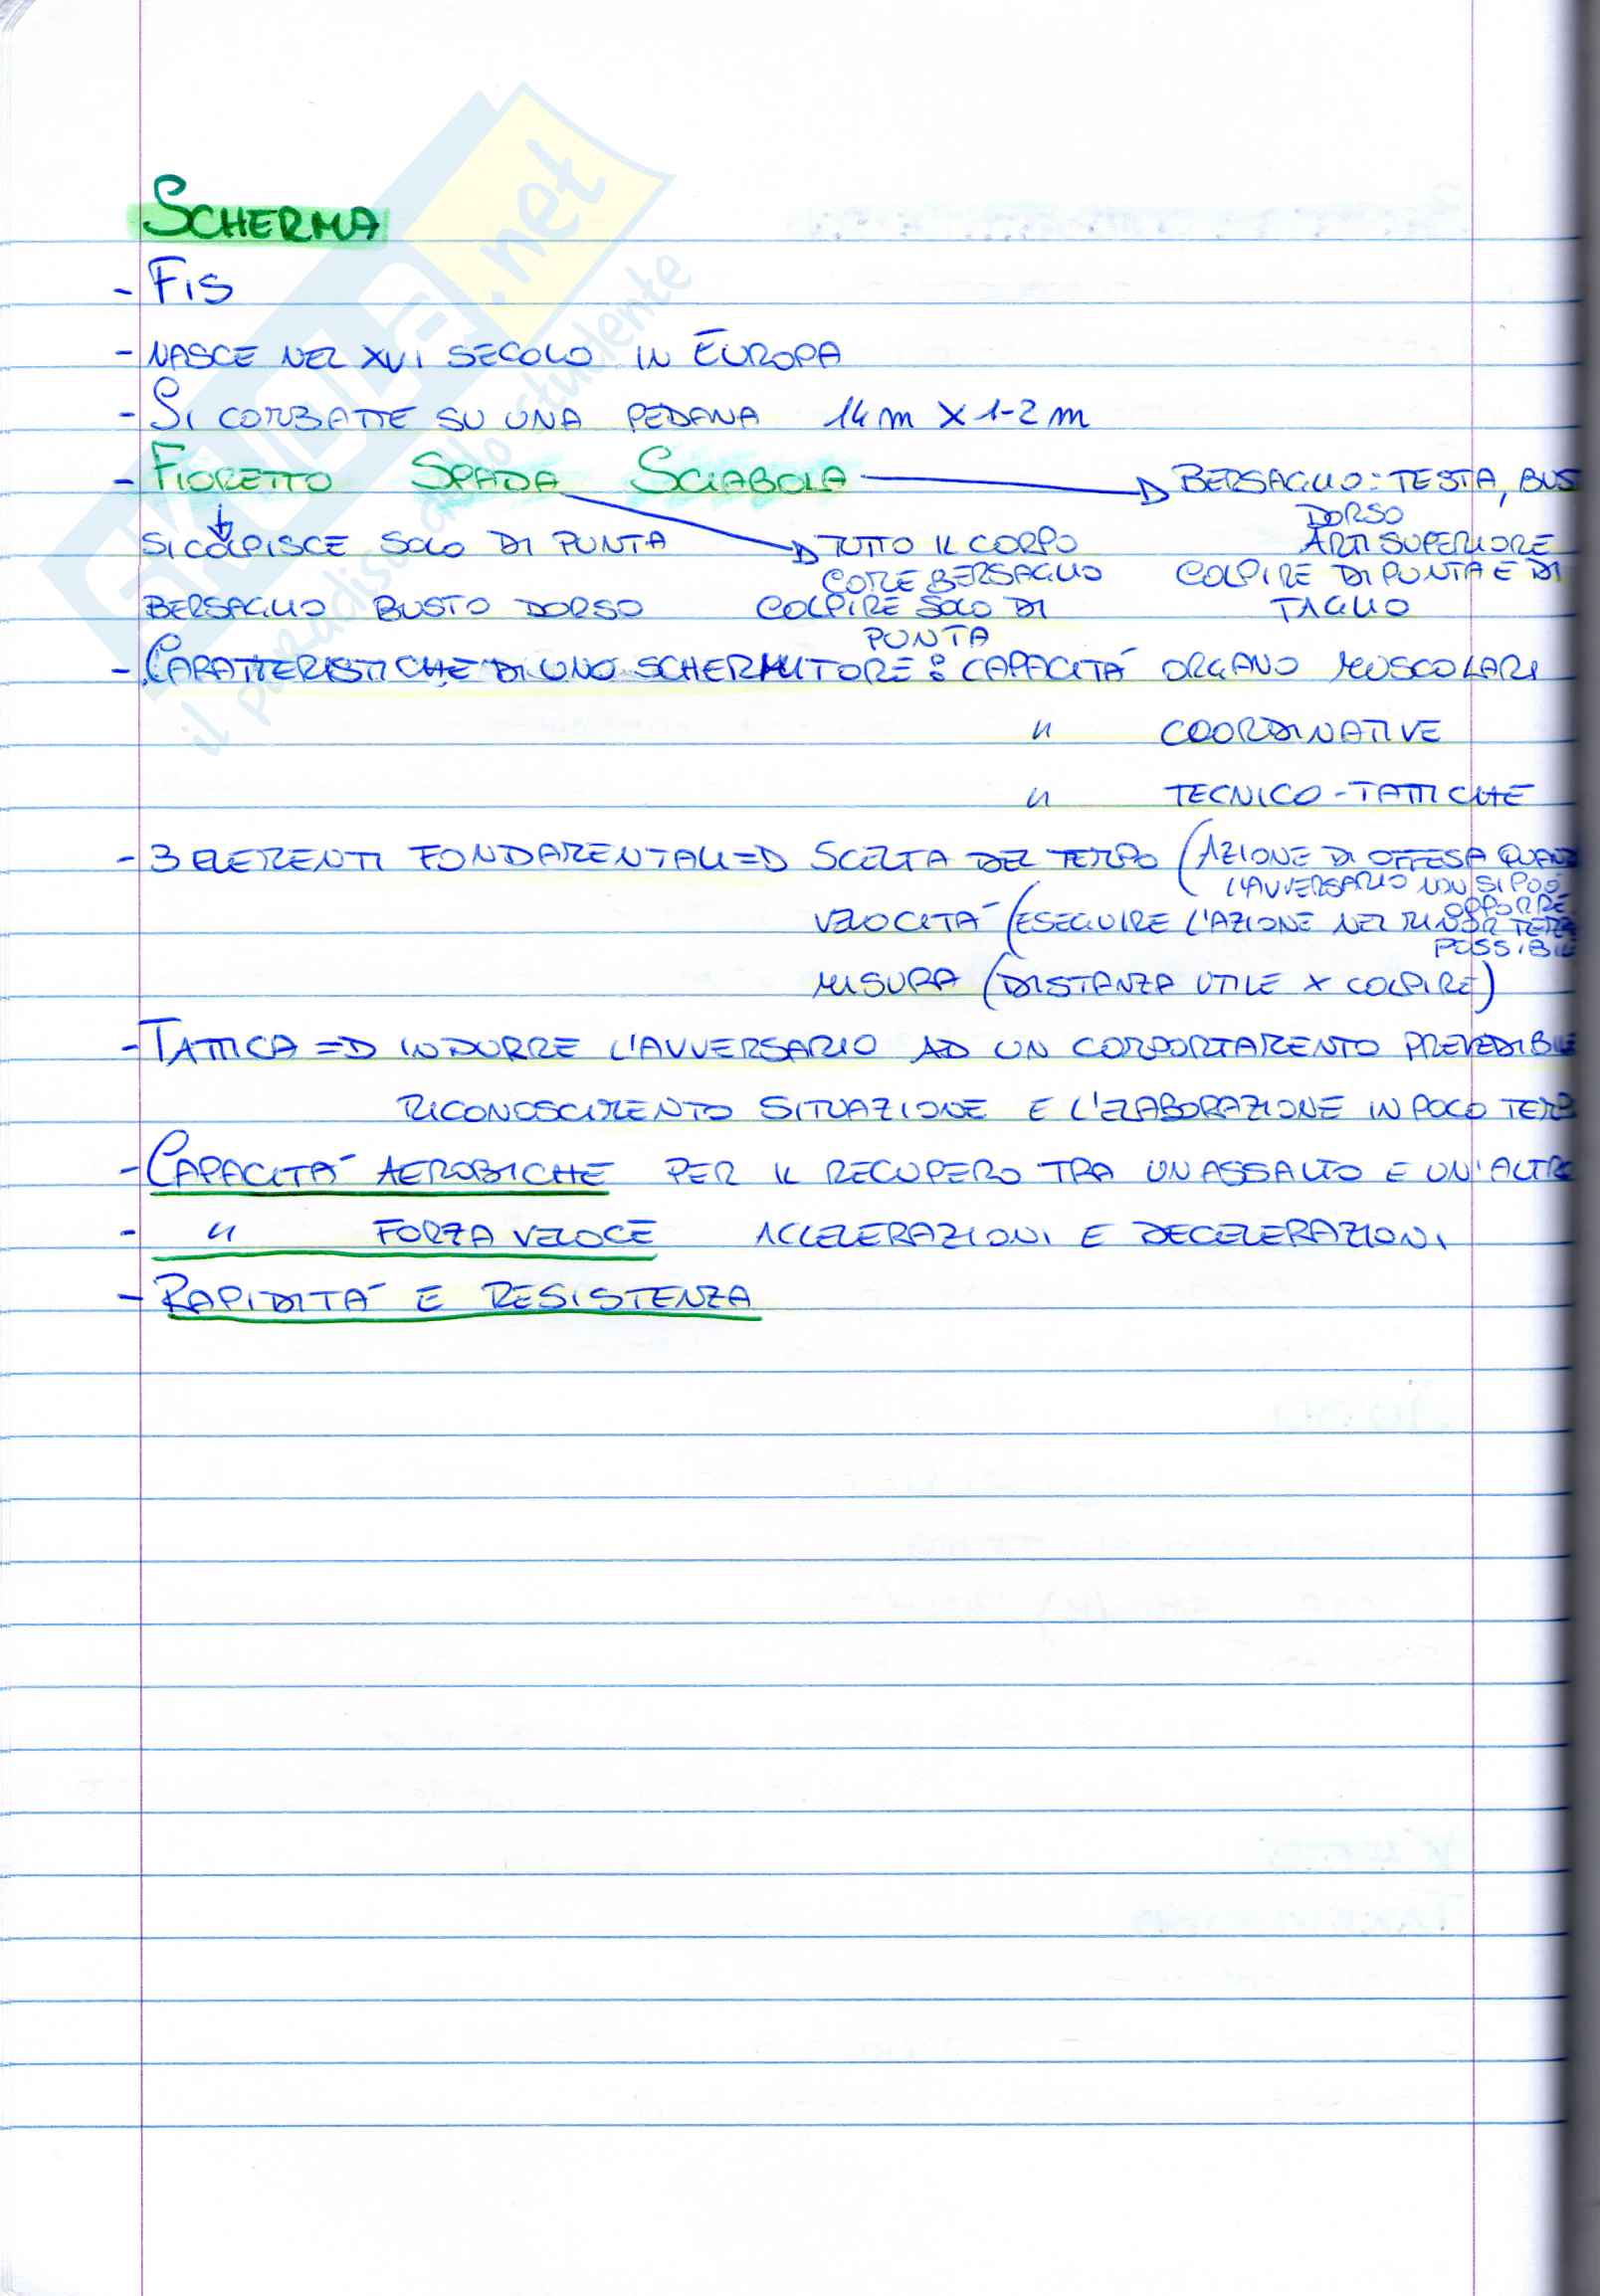 SCHERMA
- FIS
- NASCE NEL XVI SECOLO IN EUROPA
- SI COMBATTE SU UNA PEDANA 14 m X 1-2 m
- FIORETTO SPADA SCIABOLA → BERSAGLIO: TESTA, BUS
DORSO
SI COLPISCE SOLO DI PUNTA → TUTTO IL CORPO ARTI SUPERIORE
COME BERSAGLIO COLPIRE DI PUNTA E DI
BERSAGLIO BUSTO DORSO COLPIRE SOLO DI TAGLIO
PUNTA
- CARATTERISTICHE DI UNO SCHERMITORE: CAPACITÁ ORGANO MUSCOLARI
" COORDINATIVE
" TECNICO-TATTICHE
- 3 ELEMENTI FONDAMENTALI => SCELTA DEL TEMPO (AZIONE DI OFFESA QUAND
L'AVVERSARIO NON SI PUÓ
OPPORRE
VELOCITÁ (ESEGUIRE L'AZIONE NEL MINOR TEMP
POSSIBILE
MISURA (DISTANZA UTILE X COLPIRE)
- TATTICA => INDURRE L'AVVERSARIO AD UN COMPORTAMENTO PREVEDIBILE
RICONOSCIMENTO SITUAZIONE E L'ELABORAZIONE IN POCO TEMP
- CAPACITÁ AEROBICHE PER IL RECUPERO TRA UN ASSALTO E UN'ALTRO
- " FORZA VELOCE ACCELERAZIONI E DECELERAZIONI
- RAPIDITÁ E RESISTENZA
SKUOLA.net
il paradiso dello studente